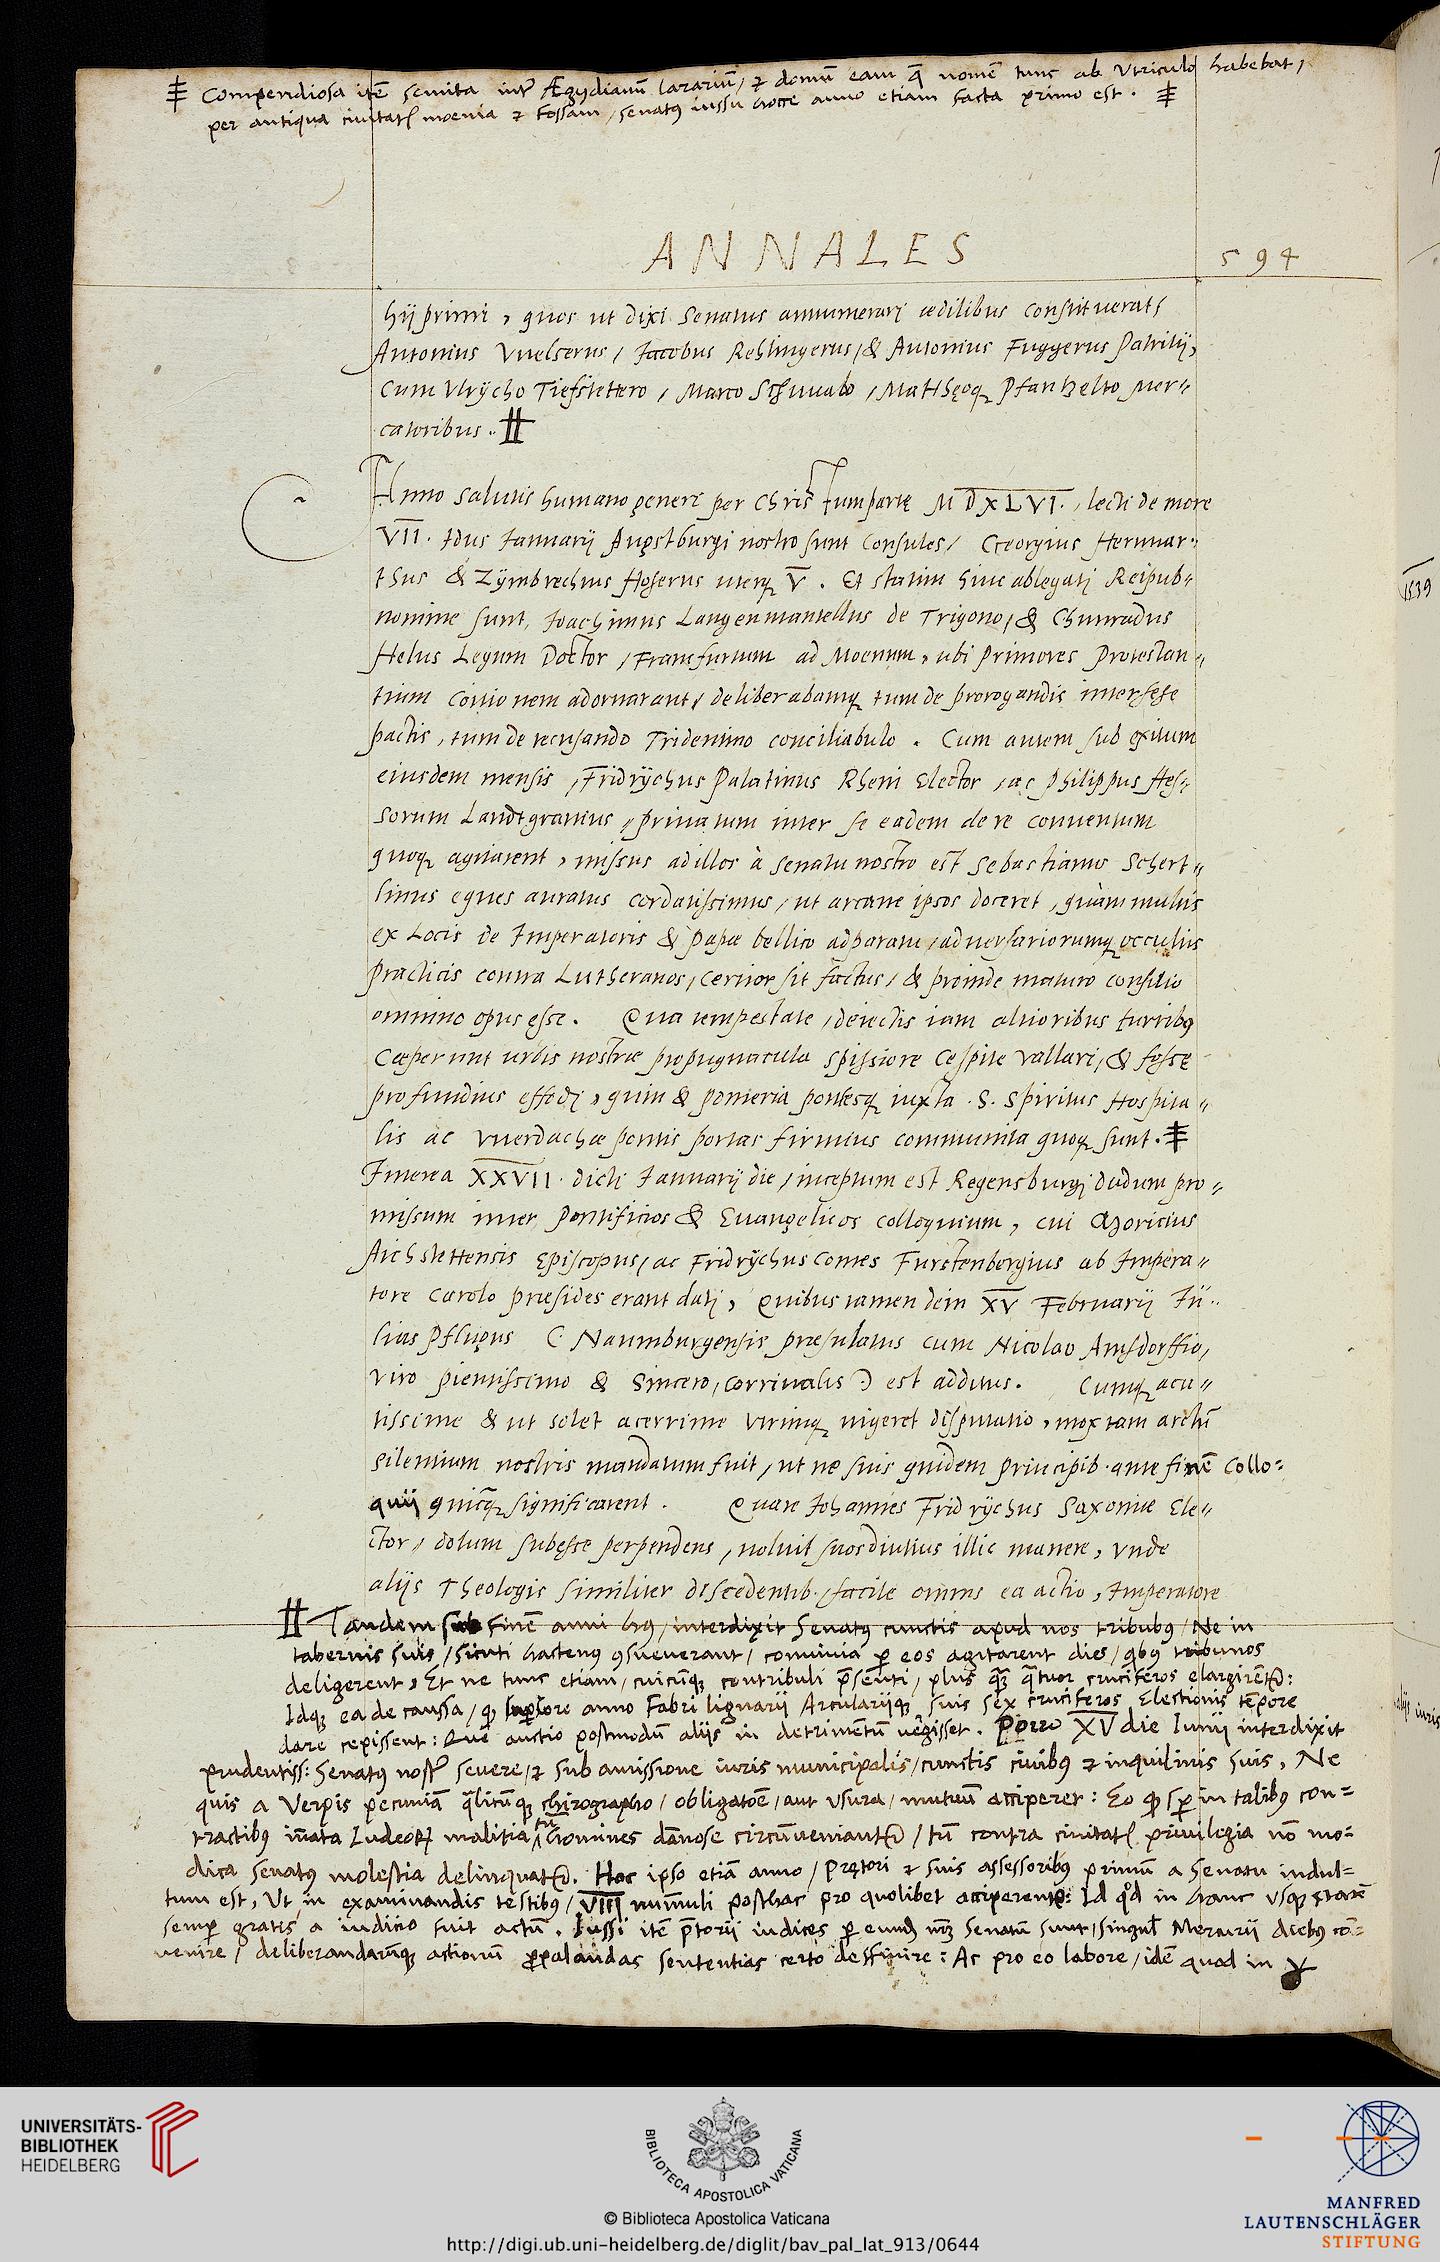 Compendiosa itē semita intr̄ Ægydianū larariū, & domū eam q̄ nomē tunc ab Utriculo habebat,
per antiqua ciuitatꝭ moenia & fossam, senatꝰ iussu hocce anno etiam facta primo est.
ANNALES
594
hij primi, quos ut dixi Senatus annumerari ædilibus constituerat,
Antonius Vuelserus, Iacobus Rehlingerus, & Antonius Fuggerus Patritij,
cum Vlrycho Tiefstettero, Marco Schuualo, Matthęoqꝫ Pfanzelto Mer=
catoribus.
Anno salutis humano generi per Christum partę MDXLVI. lecti de more
VII. Idus Ianuarij Augstburgi nostro sunt Consules, Georgius Heruuar=
thus & Zymbrechtus Hoserus uterqꝫ V. Et statim hinc ablegati Reipub=
nomine sunt, Ioachimus Langenmantellus de Trigono, & Chunradus
Helus Legum Doctor, Francfurtum ad Moenum, ubi primores Protestan=
tium Coitionem adornarant, deliberabantqꝫ tum de prorogandis inter sese
pactis, tum de recusando Tridentino conciliabulo. Cum autem sub exitum
eiusdem mensis, Fridrychus Palatinus Rheni Elector, ac Philippus Hes=
sorum Landtgrauius, priuatum inter se eadem de re conuentum
quoqꝫ agitarent, missus ad illos à senatu nostro est Sebastianus Schert=
linus eques auratus cordatissimus, ut arcane ipsos doceret, quàm multis
ex Locis de Imperatoris & Papæ bellico adparatu, aduersariorumqꝫ occultis
practicis contra Lutheranos, certior sit factus, & proinde maturo consilio
omnino opus esse. Qua tempestate, deiectis iam altioribus turribꝰ
Cæperunt urbis nostræ propugnacula spissiore Cespite vallari, & fossę
profundius effodi, quin & pomeria pontesqꝫ iuxta S. Spiritus Hospita=
lis ac Vuerdachæ pontis portas firmius communita quoqꝫ sunt.
Interea XXVII. dicti Ianuarij die, inceptum est Regensburgi dudum pro=
missum inter Pontificios & Euangelicos colloquium, cui Moricius
Aichstettensis Episcopus, ac Fridrychus Comes Furstenbergius ab Impera=
tore Carolo præsides erant dati, Quibus tamen dein XV Februarij Iu=
lius Pflugus (Naumburgensis præsulatus cum Nicolao Amsdorffio,
viro pientissimo & sincero, corriualis) est additus. Cumqꝫ acu=
tissime & ut solet acerrime utrinqꝫ uigeret disputatio, mox tam arctū
silentium nostris mandatum fuit, ut ne suis quidem Principib. ante finē Collo=
quij quicqꝫ significarent. Quare Iohannes Fridrychus Saxoniæ Ele=
ctor, dolum subesse perpendens, noluit suos diutius illic manere, Vnde
alijs Theologis similiter discedentib. facile omnis ea actio, Imperatore
Tandem sub finē anni hꝰ, interdixit Senatꝰ cunctis apud nos tribubꝰ, Ne in
tabernis suis, sicuti hactenꝰ ꝯsueuerant, conuiuia ꝑ eos agitarent dies, qͥbꝰ tribunos
deligerent, Et ne tunc etiam, cuicūqꝫ contribuli p̄senti, plus qꝫ̄ qͣtuor cruciferos elargirētr̄:
Idqꝫ ea de caussa, qꝫ suꝑiore anno Fabri lignarij Arculariiqꝫ suis sex cruciferos Electionis tēpore
dare cepissent: Quę auctio postmodū aliis in detrimētū uergisset. Porro XV die Iunij interdixit
prudentiss: Senatꝰ nostr̄ seuere, & sub amissione iuris municipalis, cunctis ciuibꝰ & inquilinis suis, Ne
quis a Verpis pecuniā qͣlicūqꝫ chirographo, obligatōe, aut usura, mutuū acciperet: Eo qꝫ semꝑ in talibꝰ con=
tractibꝰ innata Iudeoꝝ malitia tū homines dānose circūueniantr̄, tū contra ciuitatꝭ priuilegia nō mo=
dica senatꝰ molestia delinquatr̄. Hoc ipso etiā anno, Prętori & suis assessoribꝰ primū a Senatu indul=
tum est, Ut in examinandis testibꝰ, VIII nummuli posthac pro quolibet acciperentr̄: Id qd̊ in hanc usqꝫ ętatē
semꝑ gratis a iudicio fuit actū. Iussi itē p̄torij iudices ꝑ eund nr̄m Senatū sunt, singulꝭ Mercurij diebꝰ cō=
uenire, deliberandarūqꝫ actionū ꝓpalandas sententias certo deffinire: Ac pro eo labore, idē quod in
1539
alijs iuris
UNIVERSITÄTS-
BIBLIOTHEK
HEIDELBERG
BIBLIOTECA APOSTOLICA VATICANA
© Biblioteca Apostolica Vaticana
http://digi.ub.uni-heidelberg.de/diglit/bav_pal_lat_913/0644
MANFRED
LAUTENSCHLÄGER
STIFTUNG